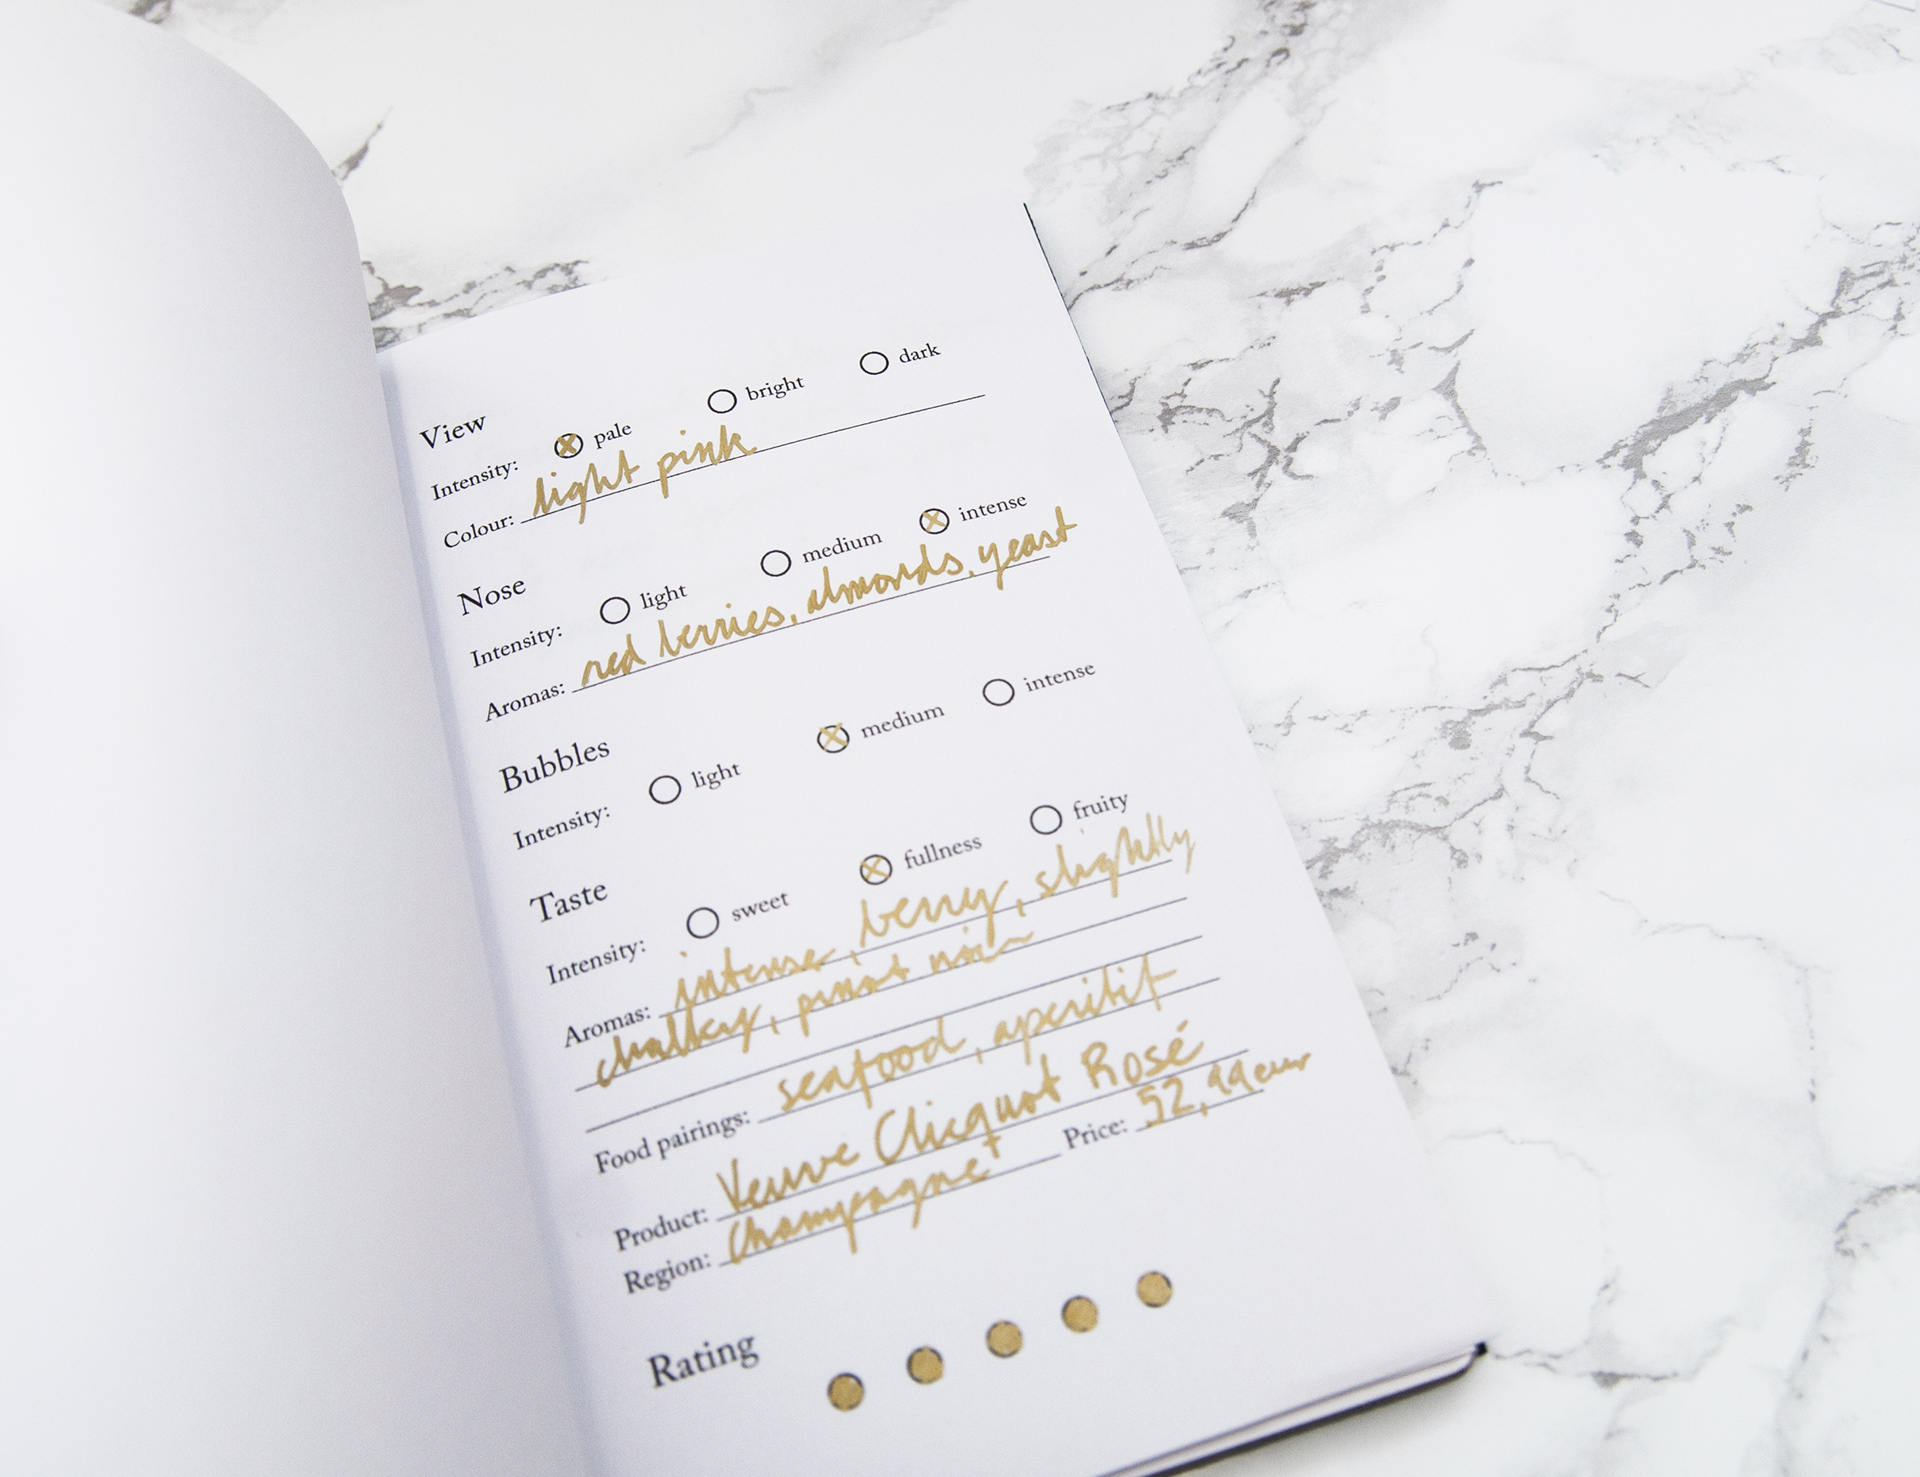 View
Intensity: pale bright dark
Colour: light pink
Nose
Intensity: light medium intense
Aromas: red berries, almonds, yeast
Bubbles
Intensity: light medium intense
Taste
Intensity: sweet fullness fruity
Aromas: intense, berry, slightly
chalky, pinot noir
Food pairings: seafood, aperitif
Product: Veuve Clicquot Rosé
Region: Champagne Price: 52,99eur
Rating